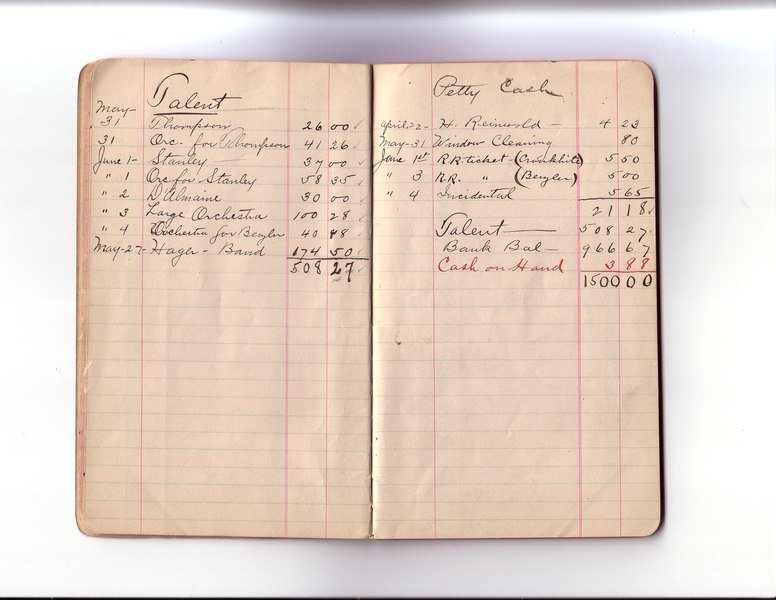 Talent
May-
31 Thompson 26 00 ✓
31 Orc. for Thompson 41 26 ✓
June 1- Stanley 37 00 ✓
" 1 Orc for Stanley 58 35 ✓
" 2 D'Almaine 30 00 ✓
" 3 Large Orchestra 100 28 ✓
" 4 Orchestra for Benzler 40 88 ✓
May-27- Hager- Band 174 50 ✓
508 27 ✓
Petty Cash
April-22- H. Reinwold - 4 23
May-31 Window Cleaning 80
June 1st R.R. ticket- (Cronkhite) 5 50
" 3 R.R. " (Benzler) 5 00
" 4 Incidental 5 65
21 18 ✓
Talent 508 27 ✓
Bank Bal- 966 67
Cash on Hand 3 88
1500 00